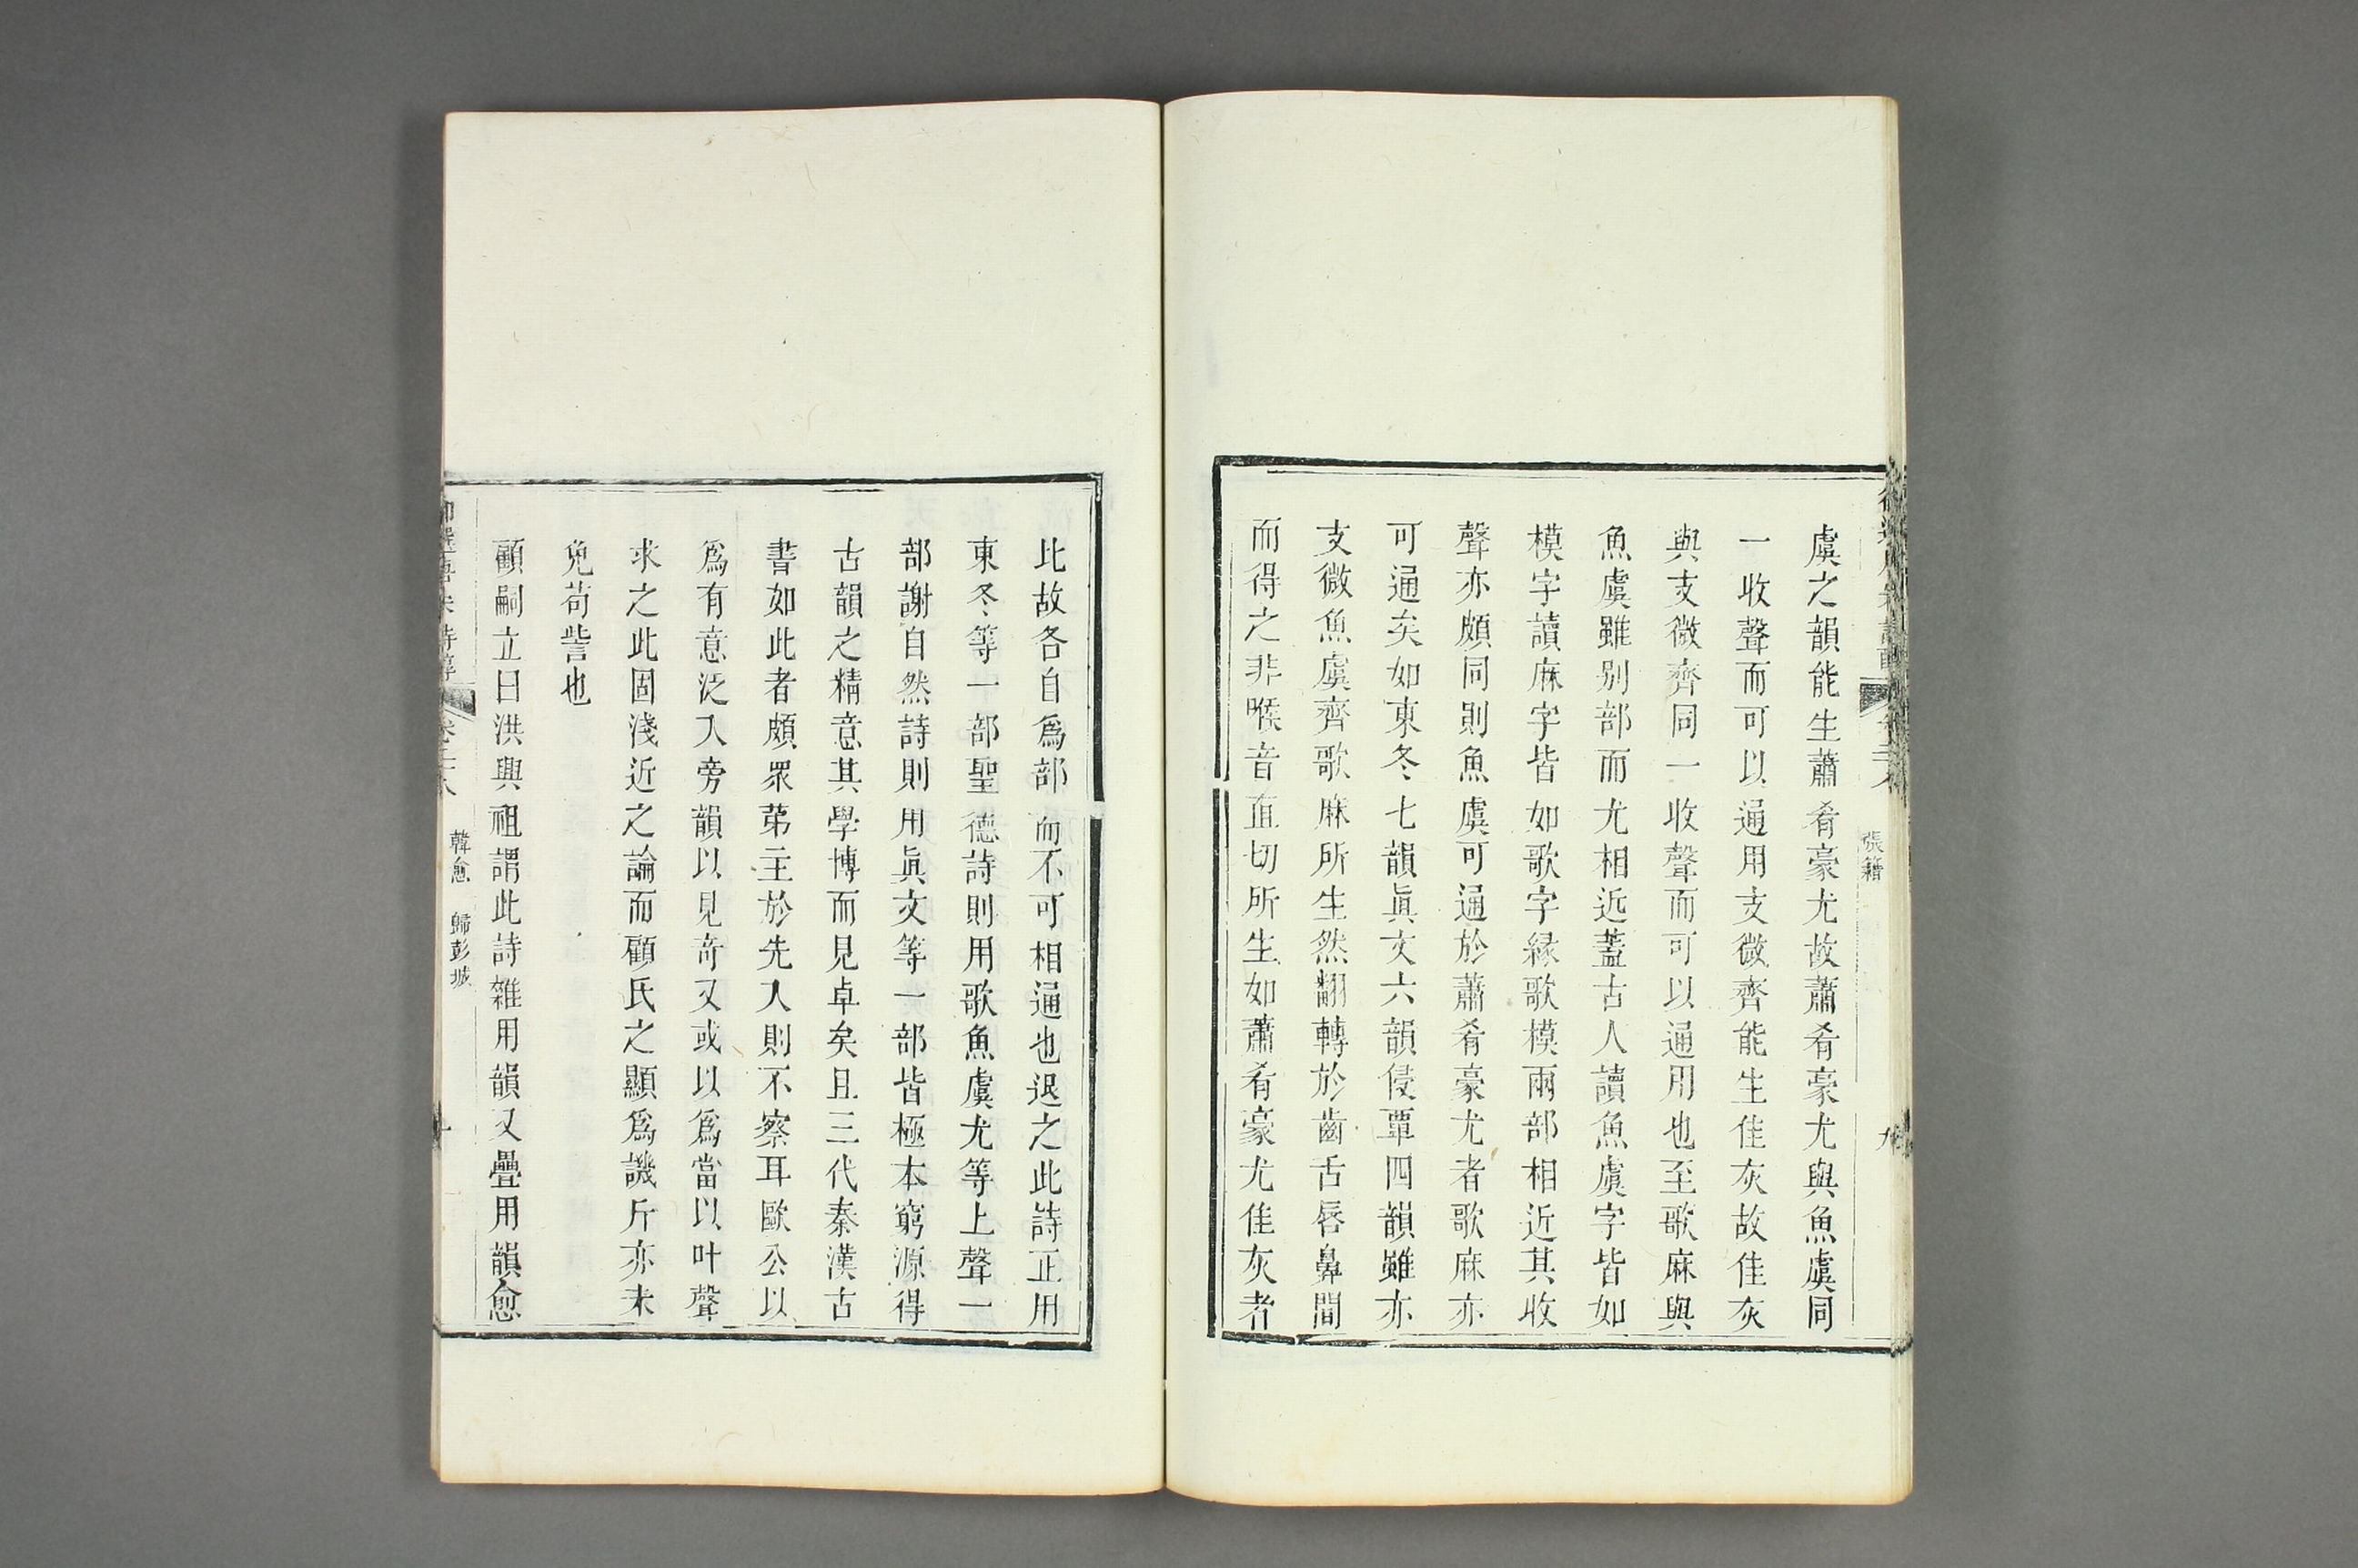 張籍
九
虞之韻能生蕭肴豪尤故蕭肴豪尤與魚虞同
一收聲而可以通用支微齊能生佳灰故佳灰
與支微齊同一收聲而可以通用也至歌麻與
魚虞雖别部而尤相近蓋古人讀魚虞字皆如
模字讀麻字皆如歌字緣歌模兩部相近其收
聲亦頗同則魚虞可通於蕭肴豪尤者歌麻亦
可通矣如東冬七韻眞文六韻侵覃四韻雖亦
支微魚虞齊歌麻所生然翻轉於齒舌唇鼻間
而得之非喉音直切所生如蕭肴豪尤佳灰者
比故各自爲部而不可相通也退之此詩正用
東冬等一部聖德詩則用歌魚虞尤等上聲一
部謝自然詩則用眞文等一部皆極本窮源得
古韻之精意其學博而見卓矣且三代秦漢古
書如此者頗衆第主於先人則不察耳歐公以
爲有意泛入旁韻以見奇又或以爲當以叶聲
求之此固淺近之論而顧氏之顯爲譏斥亦未
免苟訾也
顧嗣立曰洪興祖謂此詩雜用韻又疊用韻愈
韓愈 歸彭城